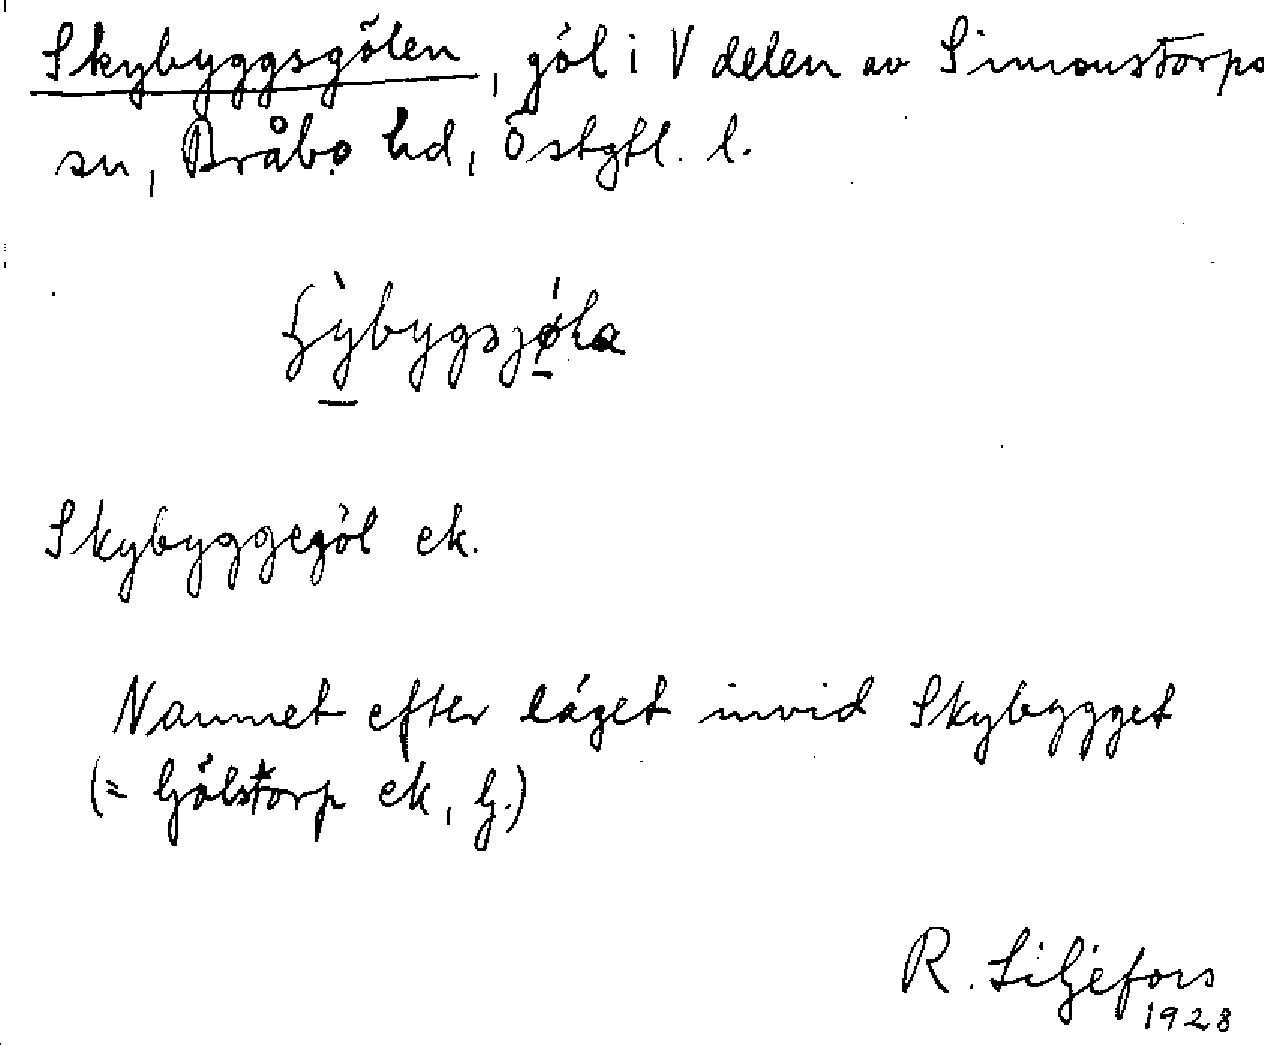 Skybyggsgölen, göl i V delen av Simonstorps
sn, Bråbo hd, Östgtl. l.
Skybyggegöl ek.
Namnet efter läget invid Skybygget
(= Gölstorp ek, G.)
R. Liljefors
1928